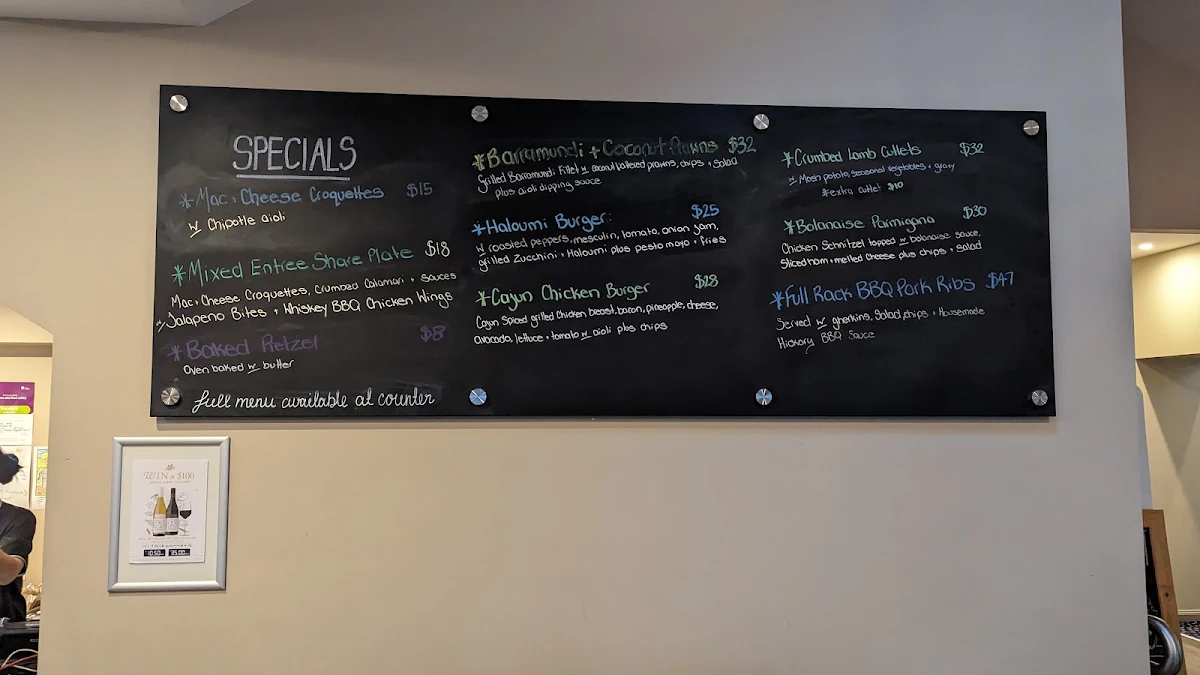 SPECIALS
*Mac + Cheese Croquettes $15
w Chipotle aioli
*Mixed Entree Share Plate $18
Mac + Cheese Croquettes, Crumbed Calamari + Sauces
w Jalapeno Bites + Whiskey BBQ Chicken Wings
*Baked Pretzel $8
Oven baked w butter
full menu available at counter
*Barramundi + Coconut Prawns $32
Grilled Barramundi Fillet w coconut battered prawns, chips + Salad
plus aioli dipping sauce
*Haloumi Burger: $25
w roasted peppers, mesculin, tomato, onion jam,
grilled Zucchini + Haloumi plus pesto mayo + fries
*Cajun Chicken Burger $28
Cajun Spiced grilled Chicken breast, bacon, pineapple, cheese,
avocado, lettuce + tomato w aioli plus chips
*Crumbed Lamb Cutlets $32
w Mash potato, seasonal vegetables + gravy
*extra cutlet $10
*Bolanaise Parmigana $30
Chicken Schnitzel topped w bolanaise sauce,
Sliced ham + melted Cheese plus chips + Salad
*Full Rack BBQ Pork Ribs $47
Served w gherkins, Salad, chips + Housemade
Hickory BBQ Sauce
WIN A $100
10.50 35.00